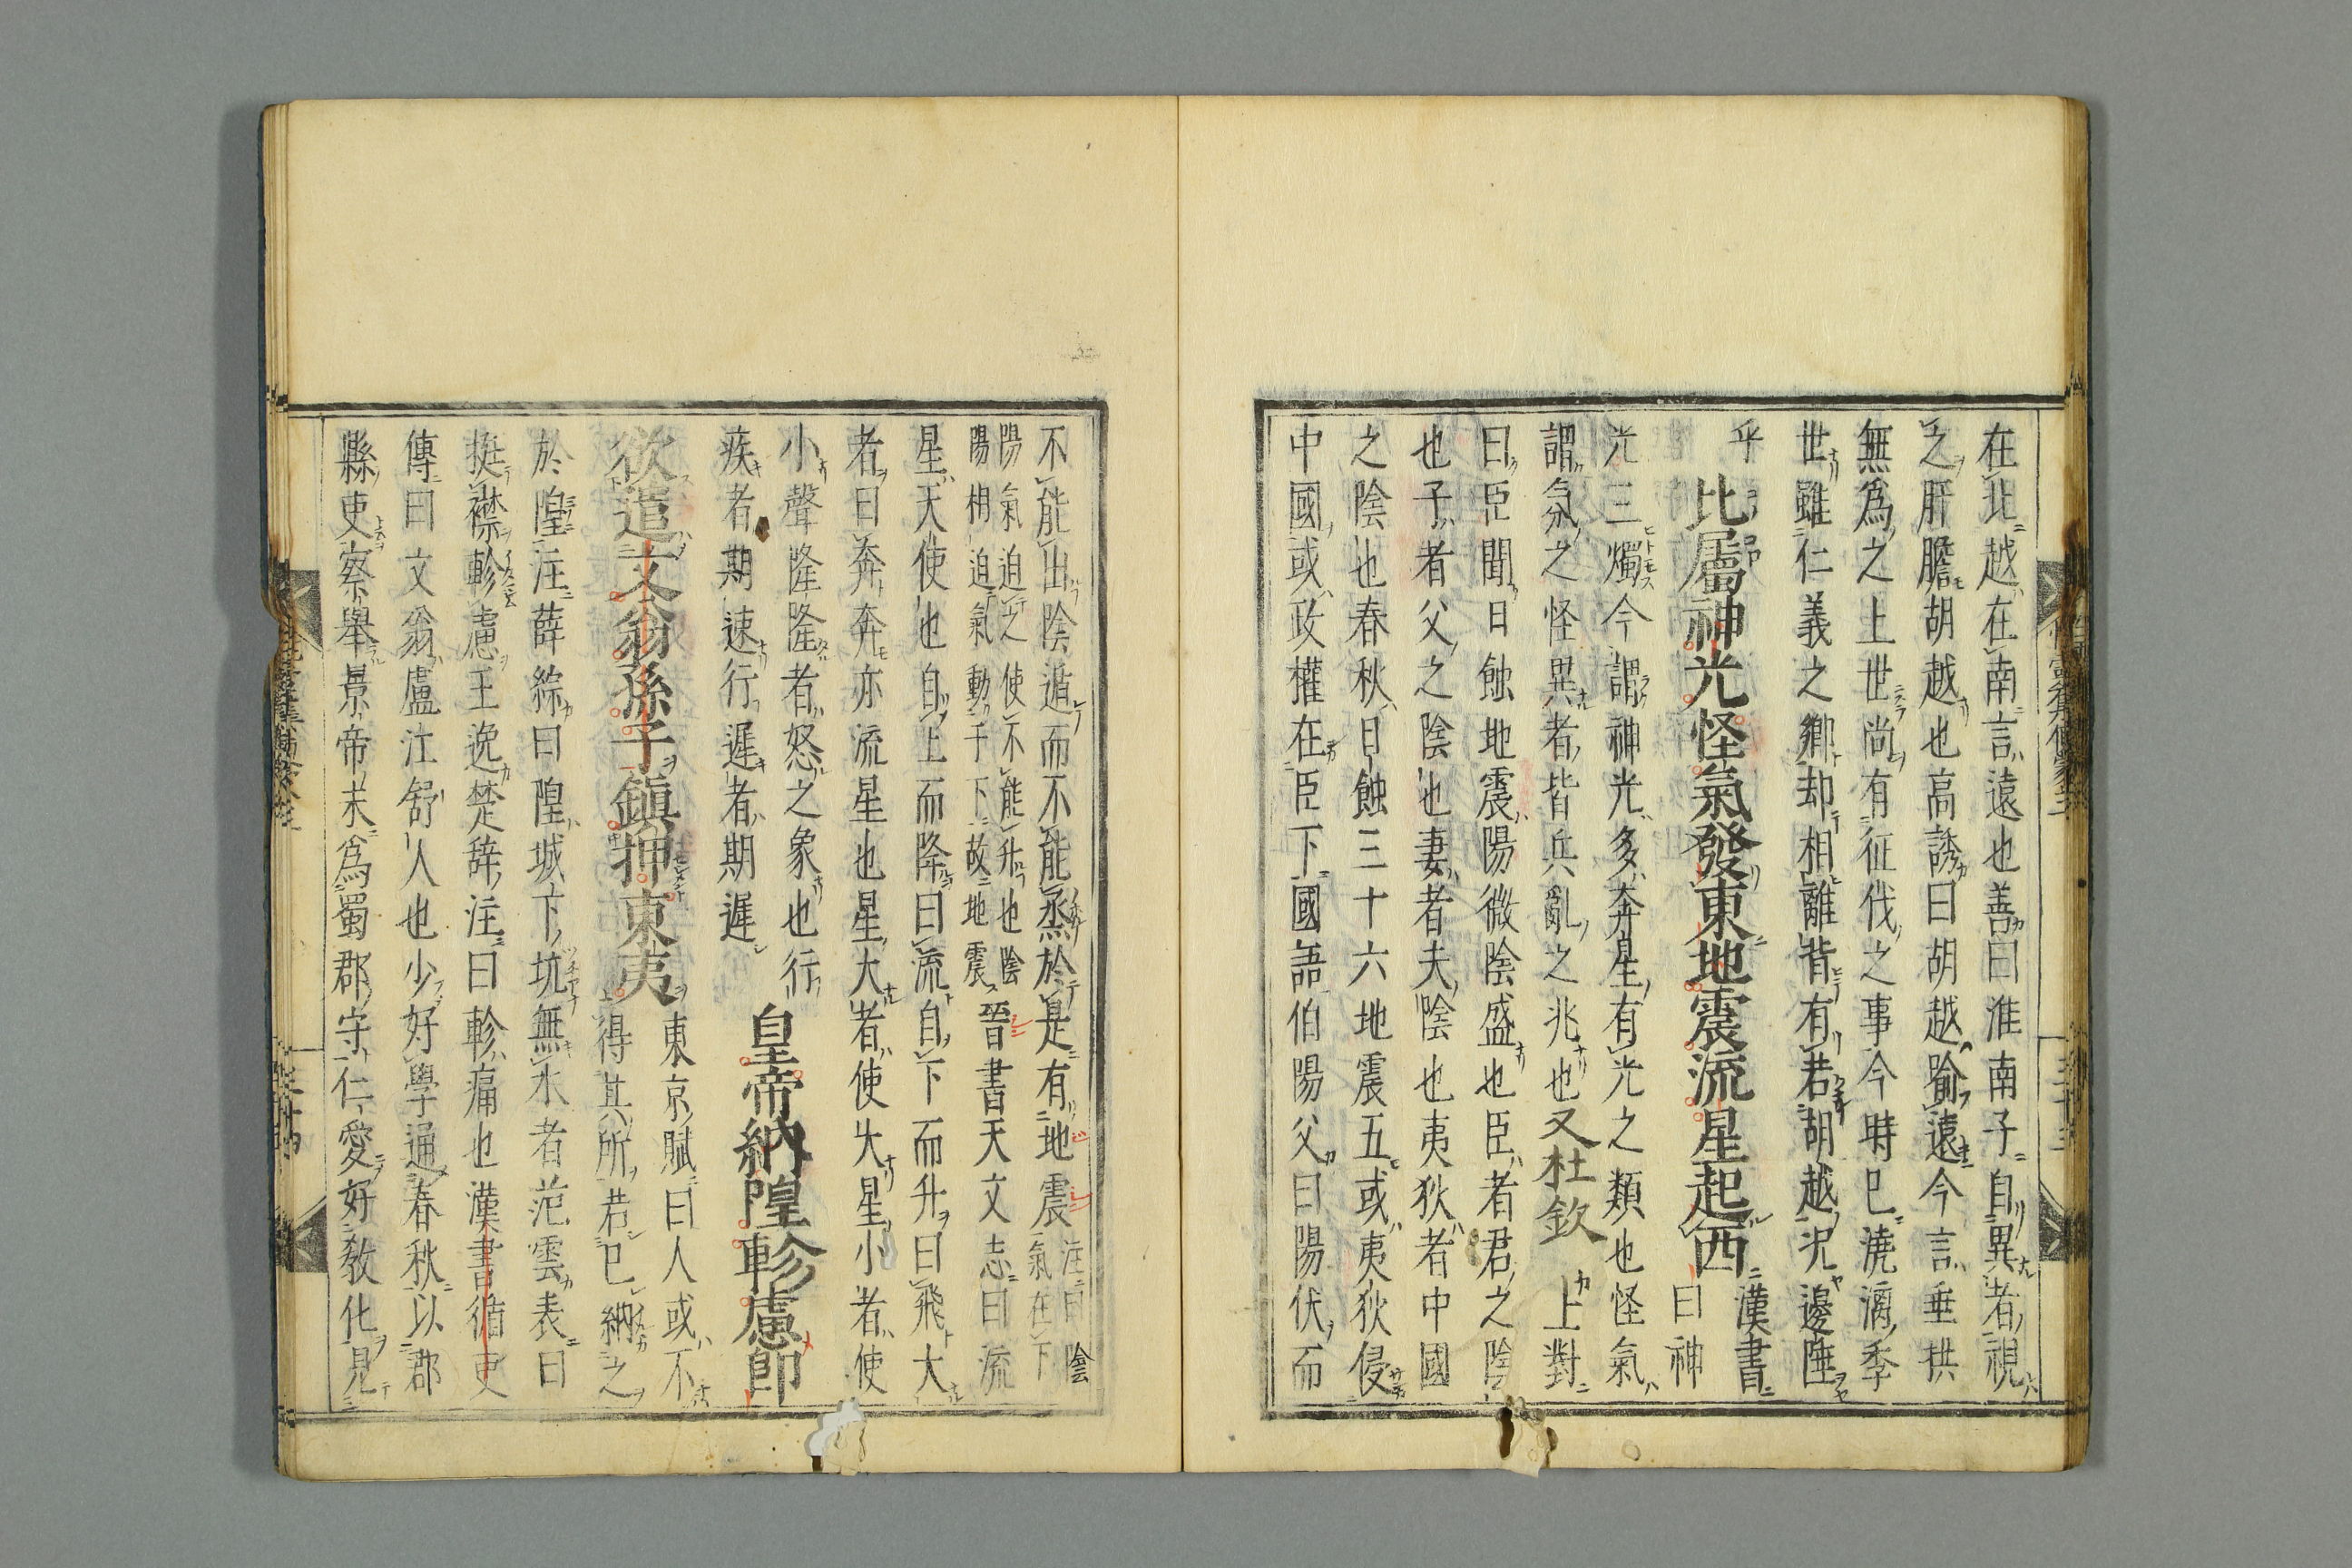 在北越在南言遠也善曰淮南子自異者視
之肝膽胡越也高誘曰胡越踰遠今言垂拱
無爲之上世尚有征伐之事今時巳澆漓季
世雖仁義之郷却相離背有君胡越況邊陲
乎
比屬神光怪氣發東地震流星起西
漢書
曰神
光三燭今謂神光多奔星有光之類也怪氣
謂氛之怪異者皆兵亂之兆也又杜欽上對
曰臣聞日蝕地震陽微陰盛也臣者君之陰
也子者父之陰也妻者夫陰也夷狄者中國
之陰也春秋日蝕三十六地震五或夷狄侵
中國或政權在臣下國語伯陽父曰陽伏而
不能出陰遁而不能烝於是有地震
注曰陰
氣在下
陽氣迫之使不能升也陰
陽相迫氣動于下故地震
晉書天文志曰流
星天使也自上而降曰流自下而升曰飛大
者曰奔奔亦流星也星大者使大星小者使
小聲隆隆者怒之象也行
疾者期速行遲者期遲
皇帝納隍軫慮即
欲遣文翁孫子鎮押東夷
東京賦曰人或不
得其所若巳納之
於隍注薛綜曰隍城下坑無水者范雲表曰
挺襟軫慮王逸楚辞注曰軫痛也漢書循吏
傳曰文翁盧江舒人也少好學通春秋以郡
縣吏察舉景帝末爲蜀郡守仁愛好教化見